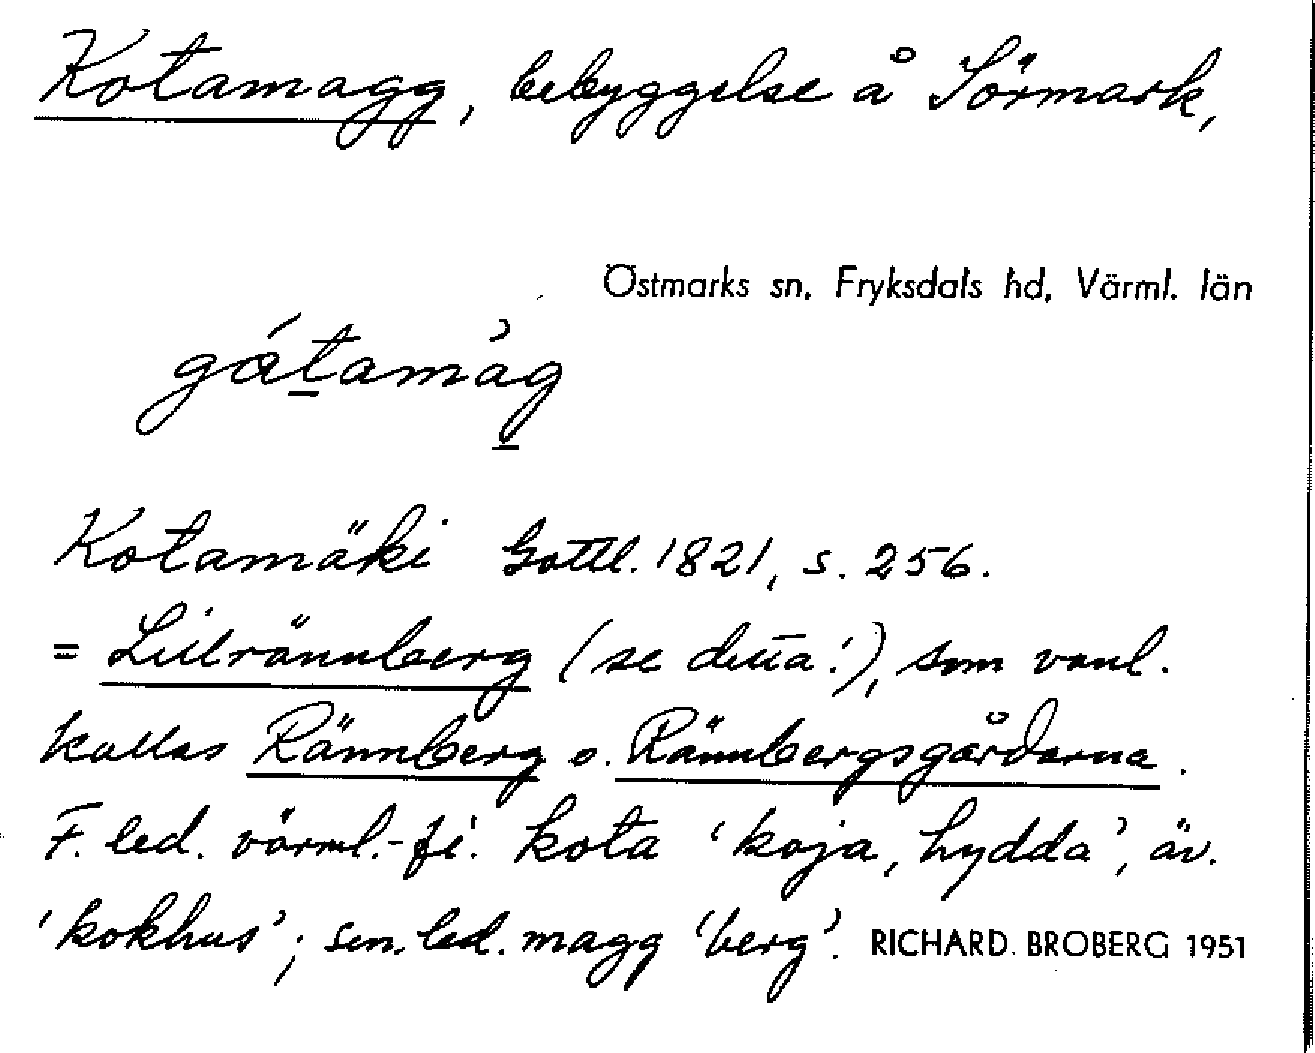 Kotamagg, bebyggelse å Sörmark,
Östmarks sn, Fryksdals hd, Värml. län
gátamàg
Kotamäki Gottl. 1821, s. 256.
= Lillrännberg (se detta!), som vanl.
kallas Rännberg o. Rännbergsgårdarna.
F. led. värml.-fi. kota 'koja, hydda', äv.
'kokhus'; sen. led. magg 'berg'. RICHARD BROBERG 1951